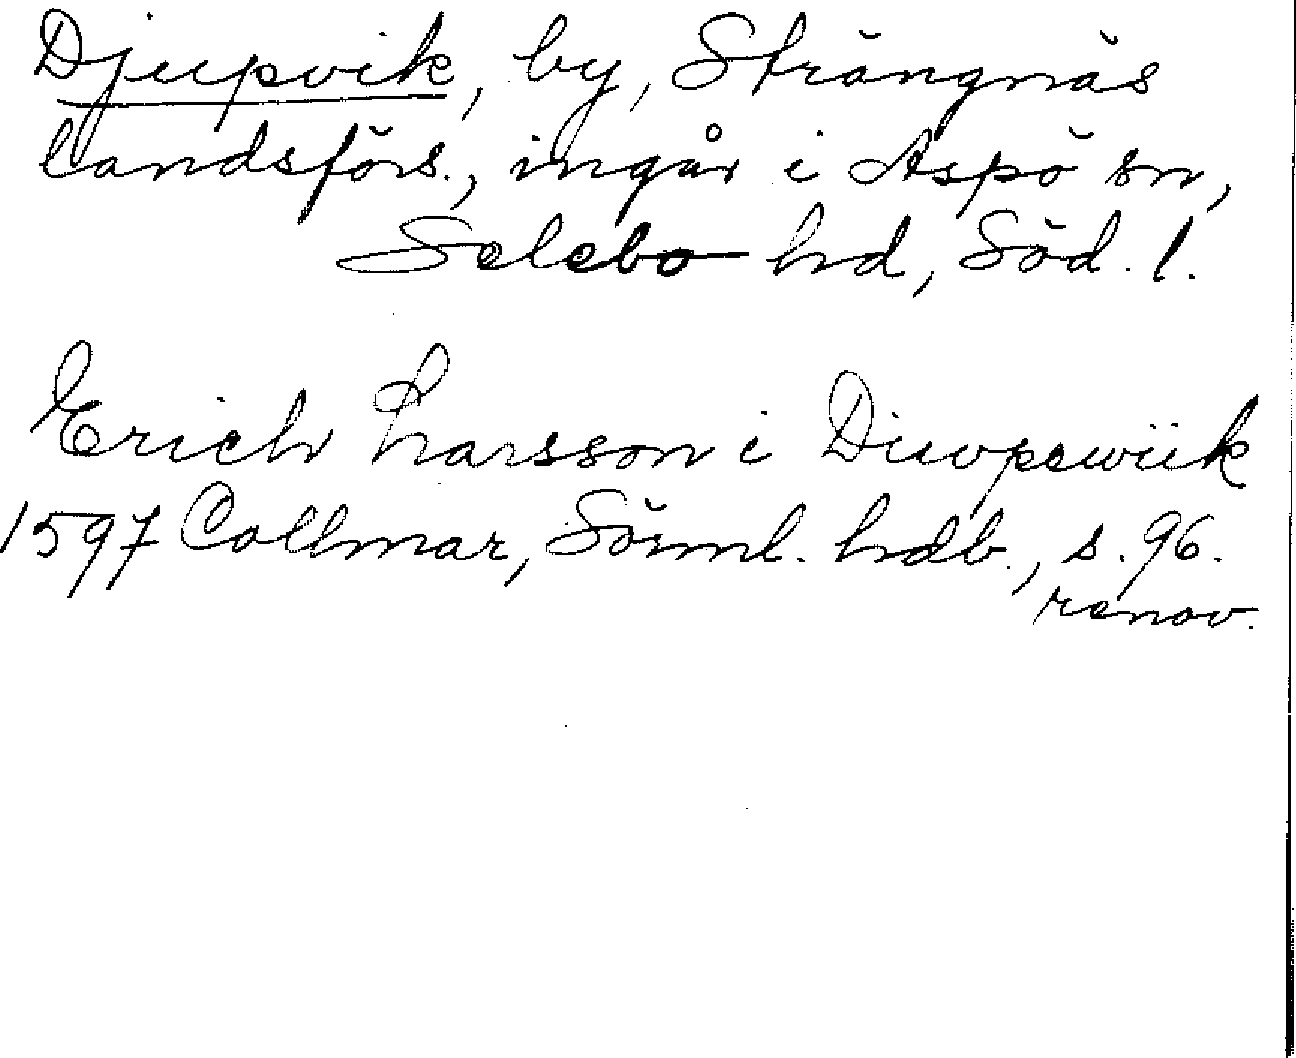 Djupvik, by, Strängnäs
landsförs., ingår i Aspö sn,
Selebo hd, Söd. l.
Erich Larsson i Diupewiik
1597 Collmar, Sörml. hdb., s. 96.
renov.